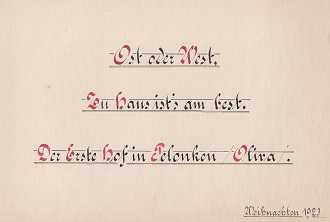 Ost oder West.
Zu Haus ist's am best.
Der Erste Hof in Pelonken (Oliva).
Weihnachten